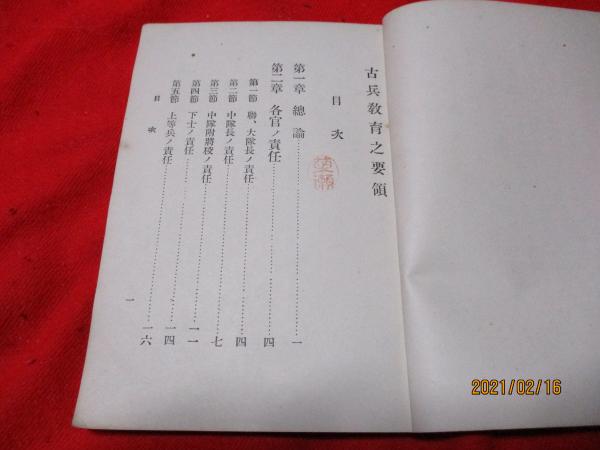 古兵教育之要領
目次
第一章 總論……一
第二章 各官ノ責任……四
第一節 聯、大隊長ノ責任……四
第二節 中隊長ノ責任……四
第三節 中隊附將校ノ責任……七
第四節 下士ノ責任……一一
第五節 上等兵ノ責任……一四
目次
一
一六
2021/02/16